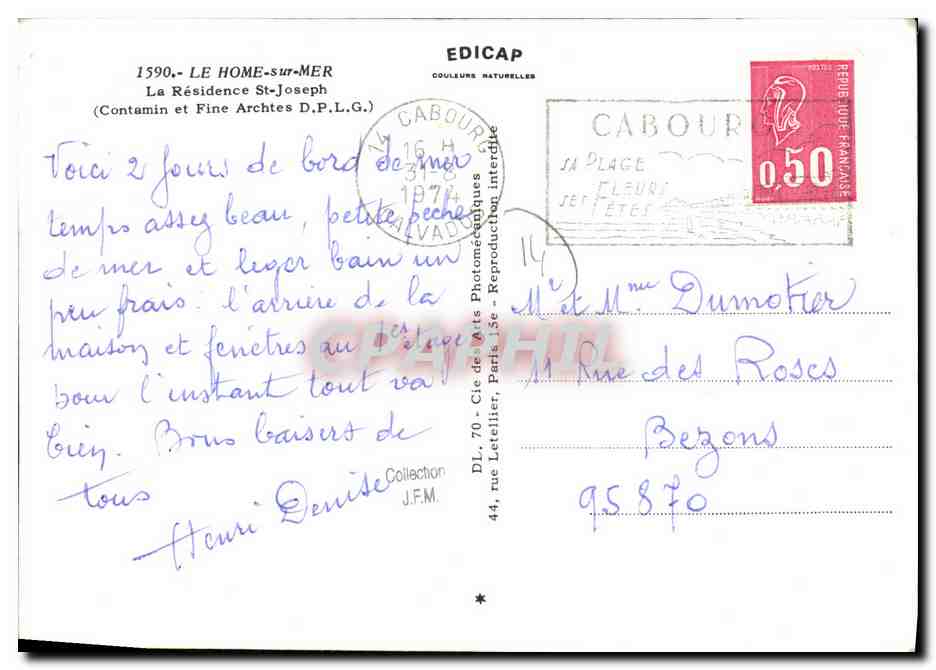 EDICAP
COULEURS NATURELLES
1590.- LE HOME-sur-MER
La Résidence St-Joseph
(Contamin et Fine Archtes D.P.L.G.)
14 CABOURG
16 H
31-8
1974
CALVADOS
CABOURG
SA PLAGE
SES FLEURS
SES FÊTES
POSTES
REPUBLIQUE FRANÇAISE
0,50
Voici 2 jours de bord de mer
temps assez beau, petite pêche
de mer et leger bain un
peu frais : l'arrière de la
maison et fenêtres au 1er étage
pour l'instant tout va
bien. Bons baisers de
tous
Henri Denise
Collection
J.F.M.
CPAPHIL
DL. 70 - Cie des Arts Photomécaniques
44, rue Letellier, Paris 15e - Reproduction interdite
14
Mr et Mme Dumotier
11 Rue des Roses
Bezons
95870